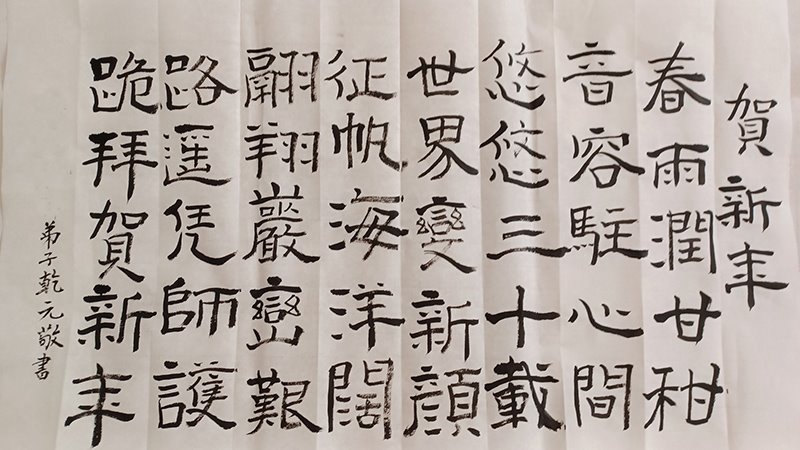 賀新年
春雨潤甘柑
音容駐心間
悠悠三十載
世界變新顏
征帆海洋闊
翮翔巖巒艱
路遥凭師護
跪拜賀新年
弟子乾元敬書